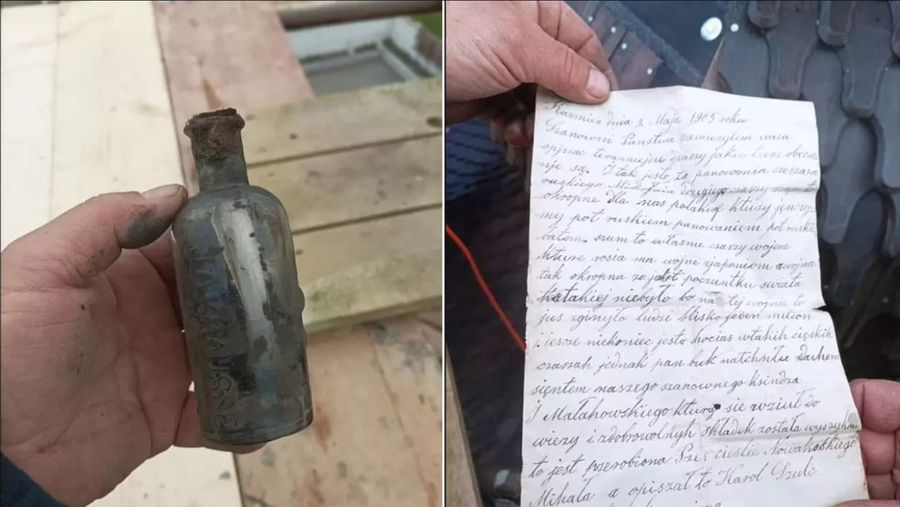 Kazmierz dnia 2 Maja 1905 roku
Szanowni Państwo zamierzyłem wam
opisać terazniejsze czasy jakie teraz obecnie
nie są. I tak jeste za panowania
ruskiego Mikołaja drugiego czasy
okropne dla nas polaków kturzy jenczy
my pot ruskiem panowaniem pot ruskim
batem. są to właśnie czasy wojene
kture rosia ma wojne zjaponiom a wojna
tak okropna ze jak poczuntku świata
takiej niebyło bo na tej wojnie to
jus zgineło ludzi blisko jeden milion
i jesze nichoniec jest a chocias wtakih cięskih
czasah jednak pan buk natchnuł duchem
sięntem naszego szanownego ksindza
J Małahowskiego ktury się wziuł do
wiezy i zdobrowolnyh składek została wyszykowa
to jest pszerobiona Pszes cieslie Nowakoskiego
Mihała a opiszał to Karol Szulc